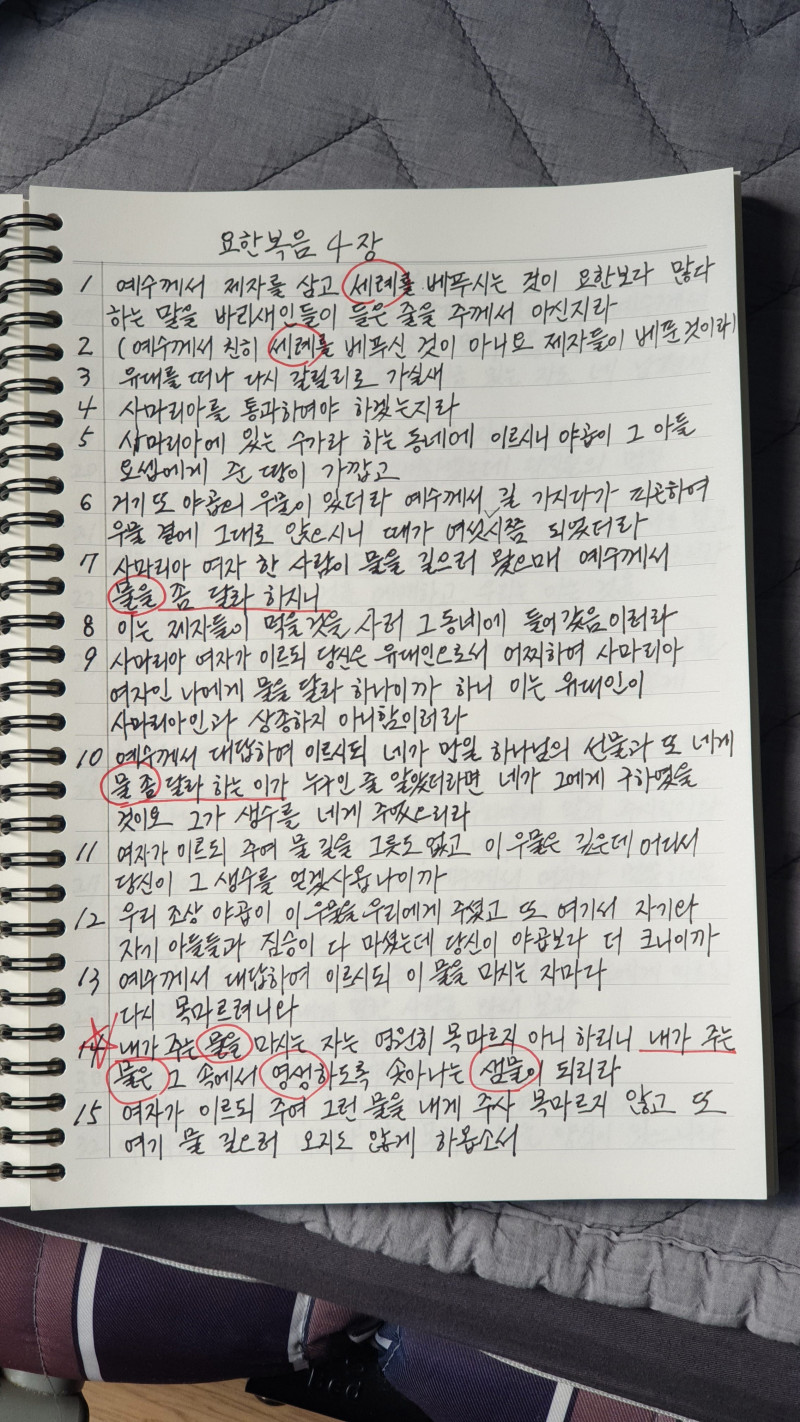 요한복음 4장
1 예수께서 제자를 삼고 세례를 베푸시는 것이 요한보다 많다
하는 말을 바리새인들이 들은 줄을 주께서 아신지라
2 (예수께서 친히 세례를 베푸신 것이 아니요 제자들이 베푼 것이라)
3 유대를 떠나 다시 갈릴리로 가실새
4 사마리아를 통과하여야 하겠는지라
5 사마리아에 있는 수가라 하는 동네에 이르시니 야곱이 그 아들
요셉에게 준 땅이 가깝고
6 거기 또 야곱의 우물이 있더라 예수께서 길 가시다가 피곤하여
우물 곁에 그대로 앉으시니 때가 여섯 시쯤 되었더라
7 사마리아 여자 한 사람이 물을 길으러 왔으매 예수께서
물을 좀 달라 하시니
8 이는 제자들이 먹을 것을 사러 그 동네에 들어갔음이러라
9 사마리아 여자가 이르되 당신은 유대인으로서 어찌하여 사마리아
여자인 나에게 물을 달라 하나이까 하니 이는 유대인이
사마리아인과 상종하지 아니함이러라
10 예수께서 대답하여 이르시되 네가 만일 하나님의 선물과 또 네게
물 좀 달라 하는 이가 누구인 줄 알았더라면 네가 그에게 구하였을
것이요 그가 생수를 네게 주었으리라
11 여자가 이르되 주여 물 길을 그릇도 없고 이 우물은 깊은데 어디서
당신이 그 생수를 얻겠사옵나이까
12 우리 조상 야곱이 이 우물을 우리에게 주셨고 또 여기서 자기와
자기 아들들과 짐승이 다 마셨는데 당신이 야곱보다 더 크니이까
13 예수께서 대답하여 이르시되 이 물을 마시는 자마다
다시 목마르려니와
14 내가 주는 물을 마시는 자는 영원히 목마르지 아니 하리니 내가 주는
물은 그 속에서 영생하도록 솟아나는 샘물이 되리라
15 여자가 이르되 주여 그런 물을 내게 주사 목마르지 않고 또
여기 물 길으러 오지도 않게 하옵소서